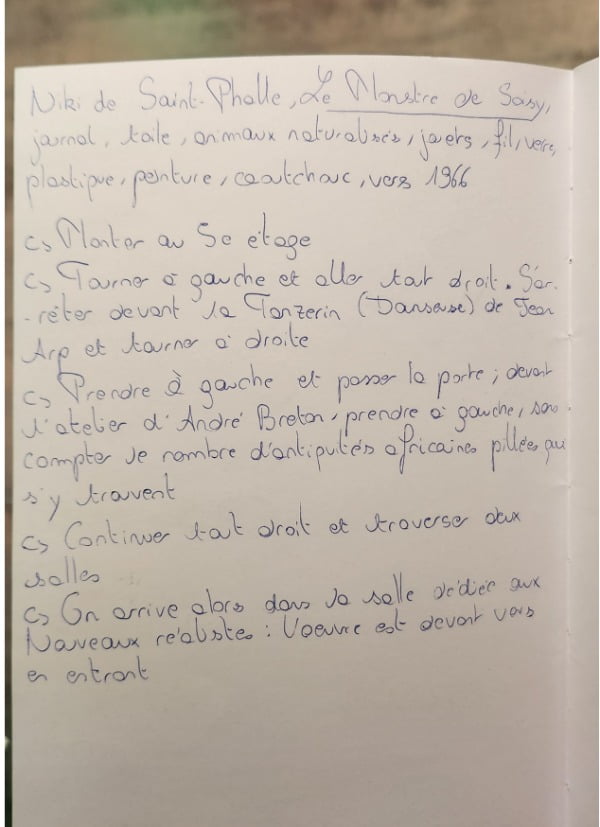 Niki de Saint-Phalle, Le Monstre de Soisy,
journal, toile, animaux naturalisés, jouets, fil, verre,
plastique, peinture, caoutchouc, vers 1966
↳ Monter au 5e étage
↳ Tourner à gauche et aller tout droit. S'ar-
-rêter devant la Tänzerin (Danseuse) de Jean
Arp et tourner à droite
↳ Prendre à gauche et passer la porte ; devant
l'atelier d'André Breton, prendre à gauche, sans
compter le nombre d'antiquités africaines pillées qui
s'y trouvent
↳ Continuer tout droit et traverser deux
salles
↳ On arrive alors dans la salle dédiée aux
Nouveaux réalistes : l'oeuvre est devant vous
en entrant